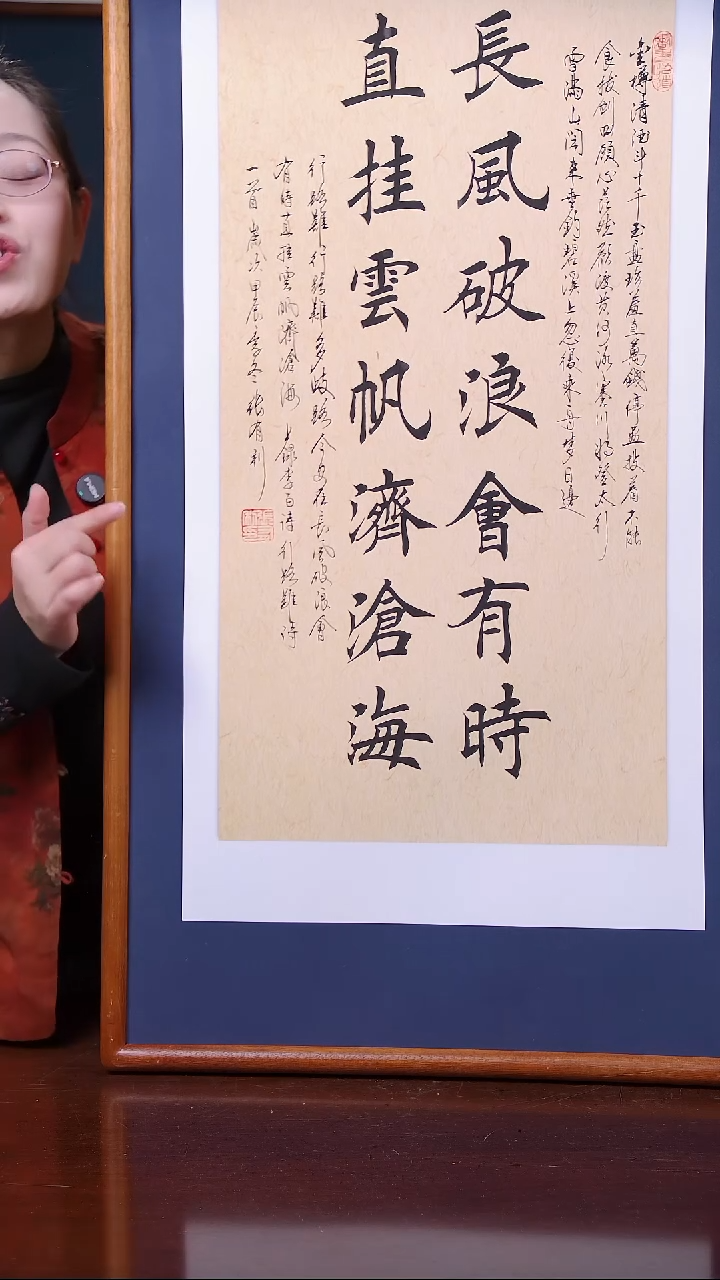 金樽清酒斗十千玉盤珍羞直萬錢停盃投箸不能
食拔劍四顧心茫然欲渡黃河冰塞川將登太行
雪滿山閑來垂釣碧溪上忽復乘舟夢日邊
長風破浪會有時
直挂雲帆濟滄海
行路難行路難多歧路今安在長風破浪會
有時直挂雲帆濟滄海 上錄李白詩行路難詩
一首 歲次甲辰季冬張有利